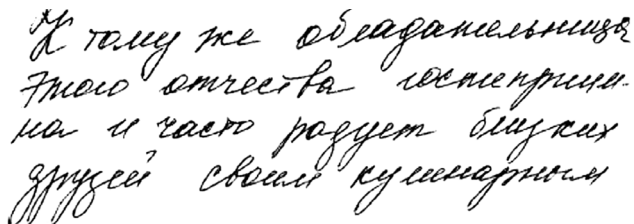 К тому же обладательница
этого отчества гостеприим-
на и часто радует близких
друзей своим кулинарным